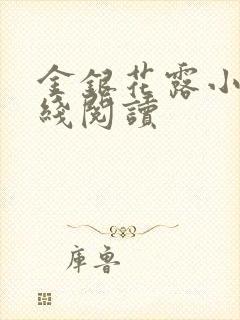 金銀花露小
綫閱讀
庫魯